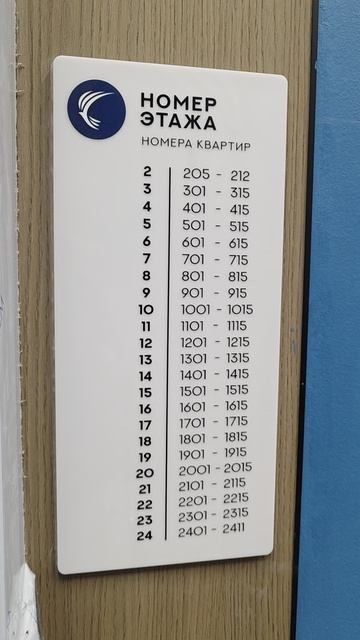 НОМЕР
ЭТАЖА
НОМЕРА КВАРТИР
2 205 - 212
3 301 - 315
4 401 - 415
5 501 - 515
6 601 - 615
7 701 - 715
8 801 - 815
9 901 - 915
10 1001 - 1015
11 1101 - 1115
12 1201 - 1215
13 1301 - 1315
14 1401 - 1415
15 1501 - 1515
16 1601 - 1615
17 1701 - 1715
18 1801 - 1815
19 1901 - 1915
20 2001 - 2015
21 2101 - 2115
22 2201 - 2215
23 2301 - 2315
24 2401 - 2411